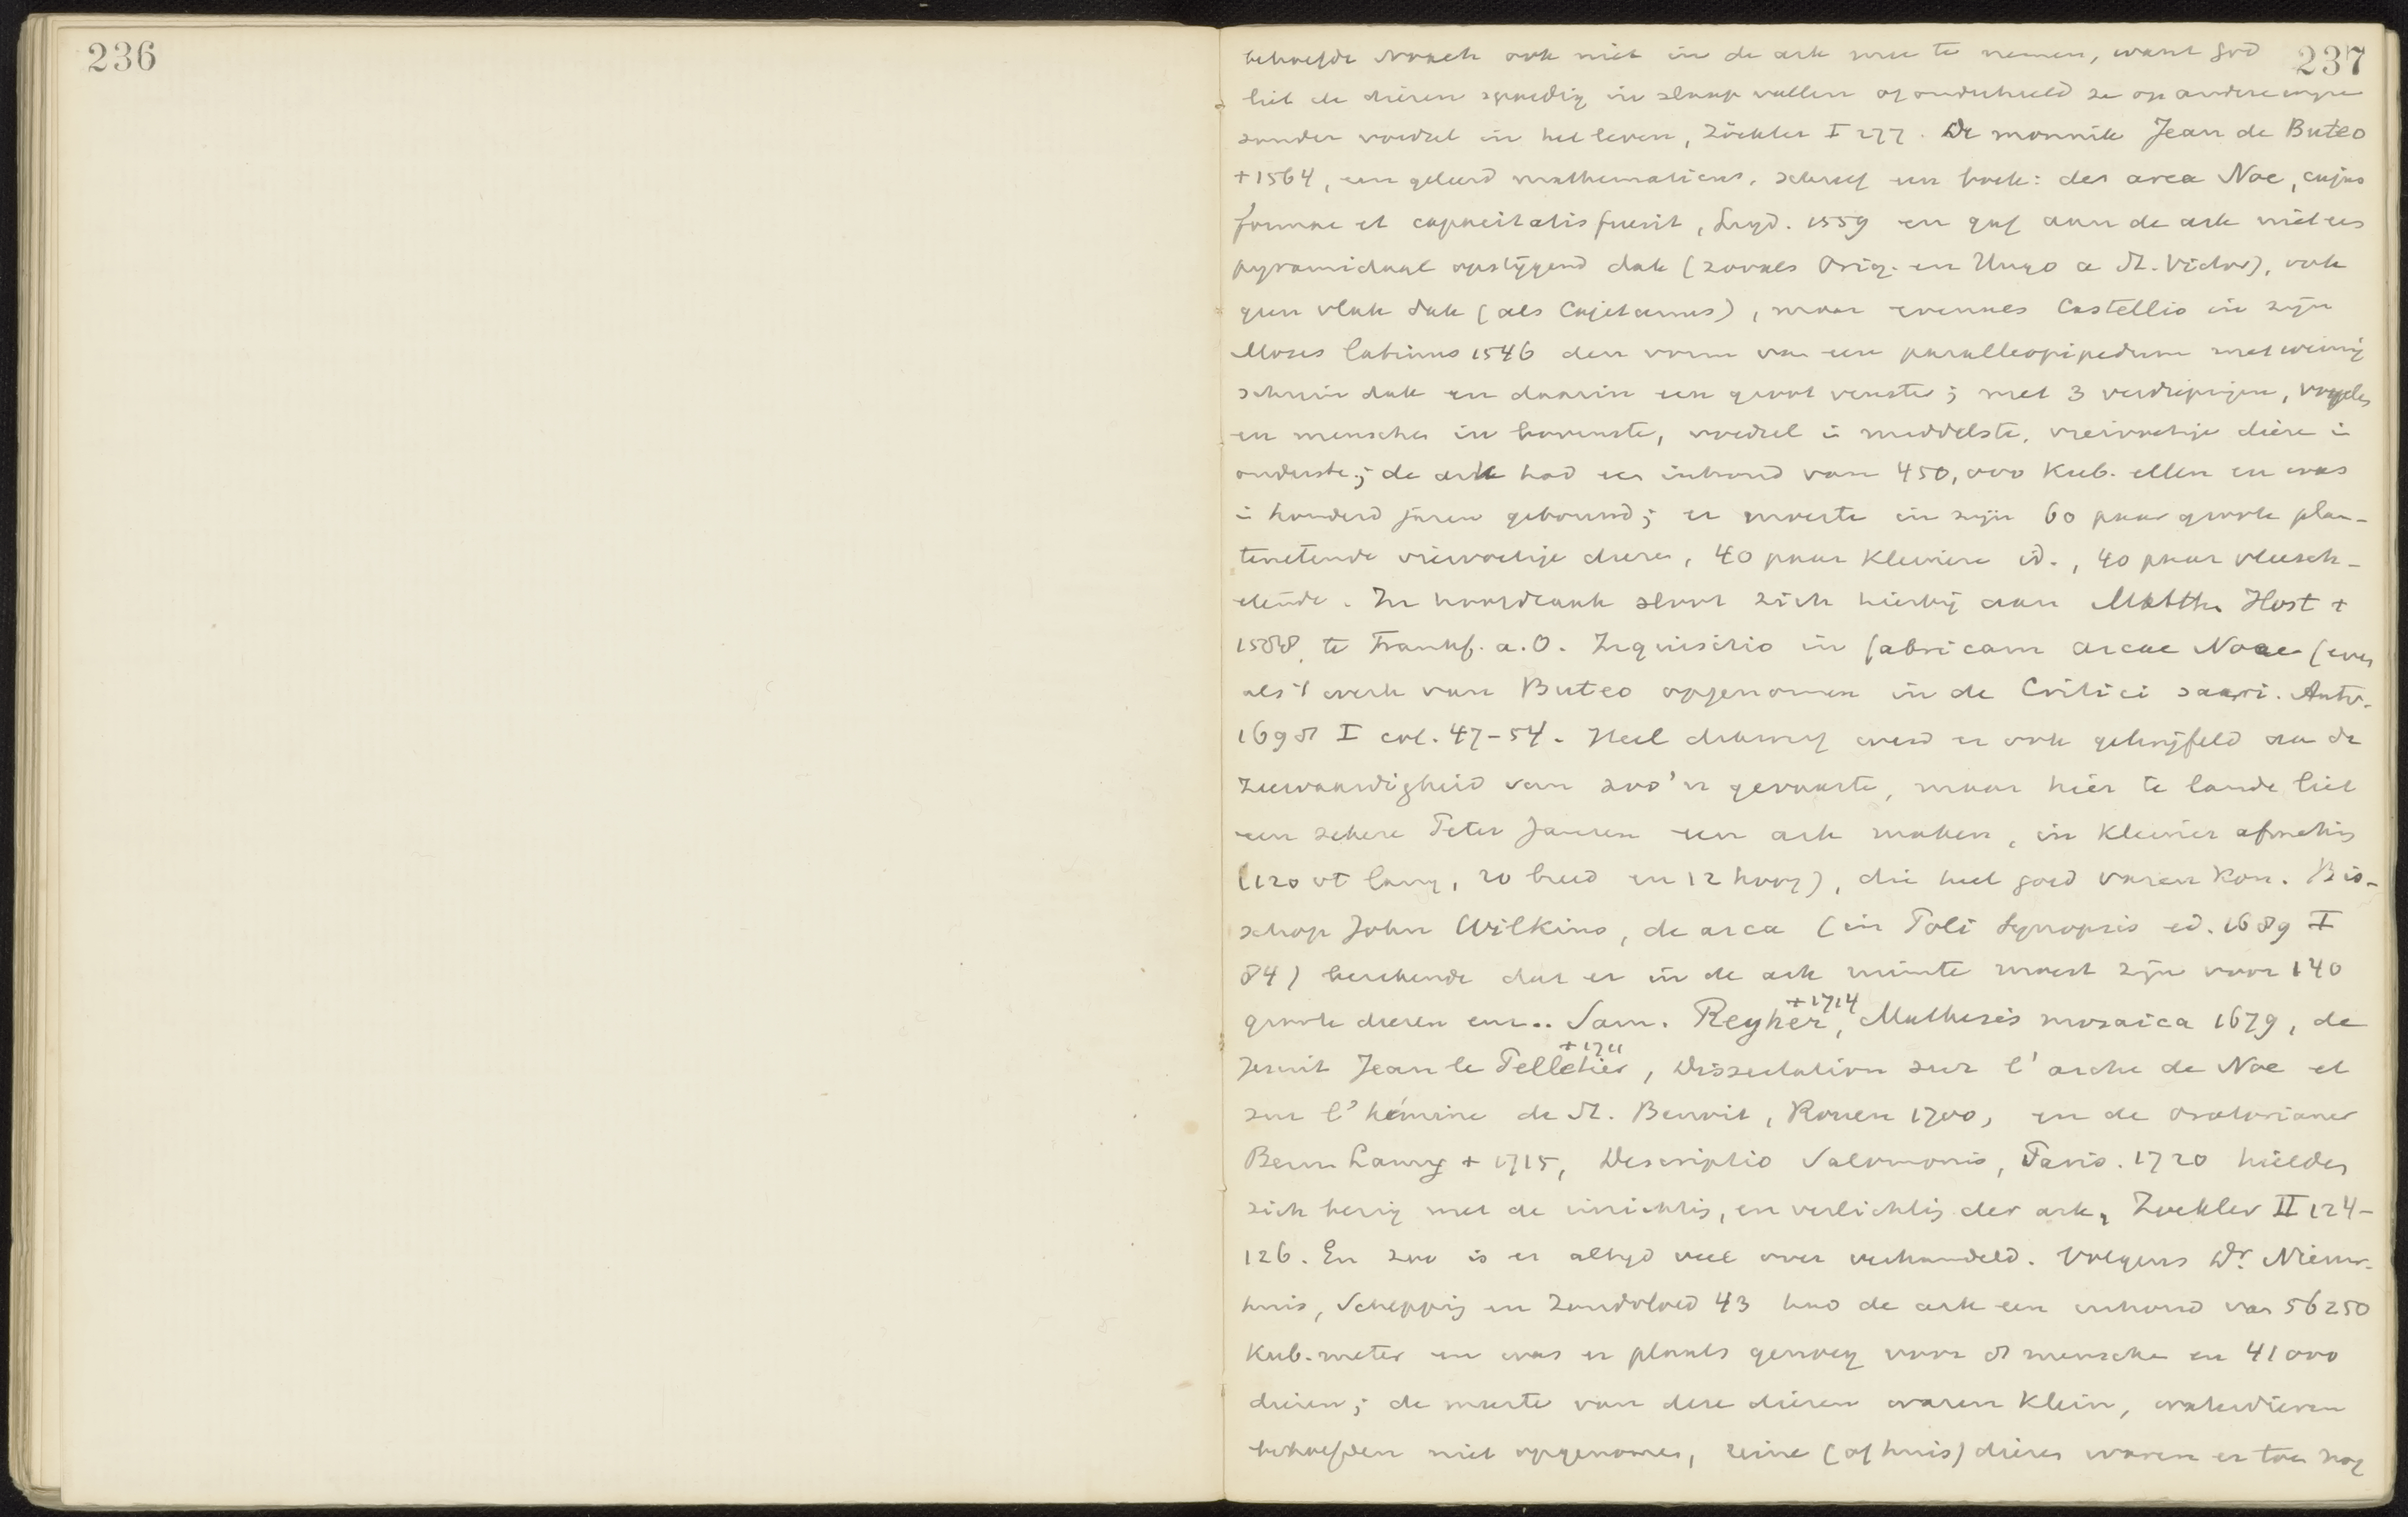 236
237
behoefde Noach ook niet in de ark mee te nemen, want God
liet de dieren spoedig in slaap vallen of onderhield ze op andere wijze
zonder voedsel in het leven, Zöckler I 277. De monnik Jean de Buteo
+1564, een geleerd mathematicus, schreef een boek: der arca Noe, cujus
formae et capacitatis fuerit, Lugd. 1559 en gaf aan de ark niet een
pyramidaal opstijgend dak (zooals Orig. en Hugo a St. Victor), ook
geen vlak dak (als Cajetanus), maar evenals Castellio in zijn
Moses latinus 1546 den vorm van een parallelopipedum met weinig
schuin dak en daarin een groot venster; met 3 verdiepingen, vogels
en menschen in bovenste, voedsel in middelste, viervoetige dieren in
onderste; de ark had een inhoud van 450,000 kub. ellen en was
in honderd jaren gebouwd; er moeste in zijn 60 paar groote plan-
tenetende viervoetige dieren, 40 paar kleinere id., 40 paar vleesch-
etende. In hoofdzaak sloot zich hierbij aan Matth. Host +
1588, te Frankf. a.O. Inquisitio in fabricam arcae Noae (even
als 't werk van Buteo opgenomen in de Critici sacri. Antw.
1698 I col. 47-54. Heel dikwerf werd er ook getwijfeld aan de
zeewaardigheid van zoo'n gevaarte, maar hier te lande liet
een zekere Peter Jansen een ark maken, in kleiner afmeting
(120 vt lang, 20 breed en 12 hoog), die heel goed varen kon. Bis-
schop John Wilkins, de arca (in Poli Synopsis ed. 1689 I
84) berekende dat er in de ark ruimte moest zijn voor 140
groote dieren enz.. Sam. Reyher +1714, Mathesis mosaica 1679, de
Jezuit Jean le Pelletier +1711, Dissertation sur l'arche de Noe et
sur l'hémine de St. Benoit, Rouen 1700, en de oratorianer
Bern. Lamy + 1715, Descriptio Salomonis, Paris. 1720 hielden
zich bezig met de inrichting, en verlichting der ark, Zockler II 124-
126. En zoo is er altijd veel over verhandeld. Volgens Dr. Nieuw-
huis, Schepping en Zondvloed 43 had de ark een inhoud van 56250
kub. meter en was er plaats genoeg voor 8 menschen en 41000
dieren; de meeste van deze dieren waren klein, waterdieren
behoefden niet opgenomen, reine (of huis) dieren waren er toen nog